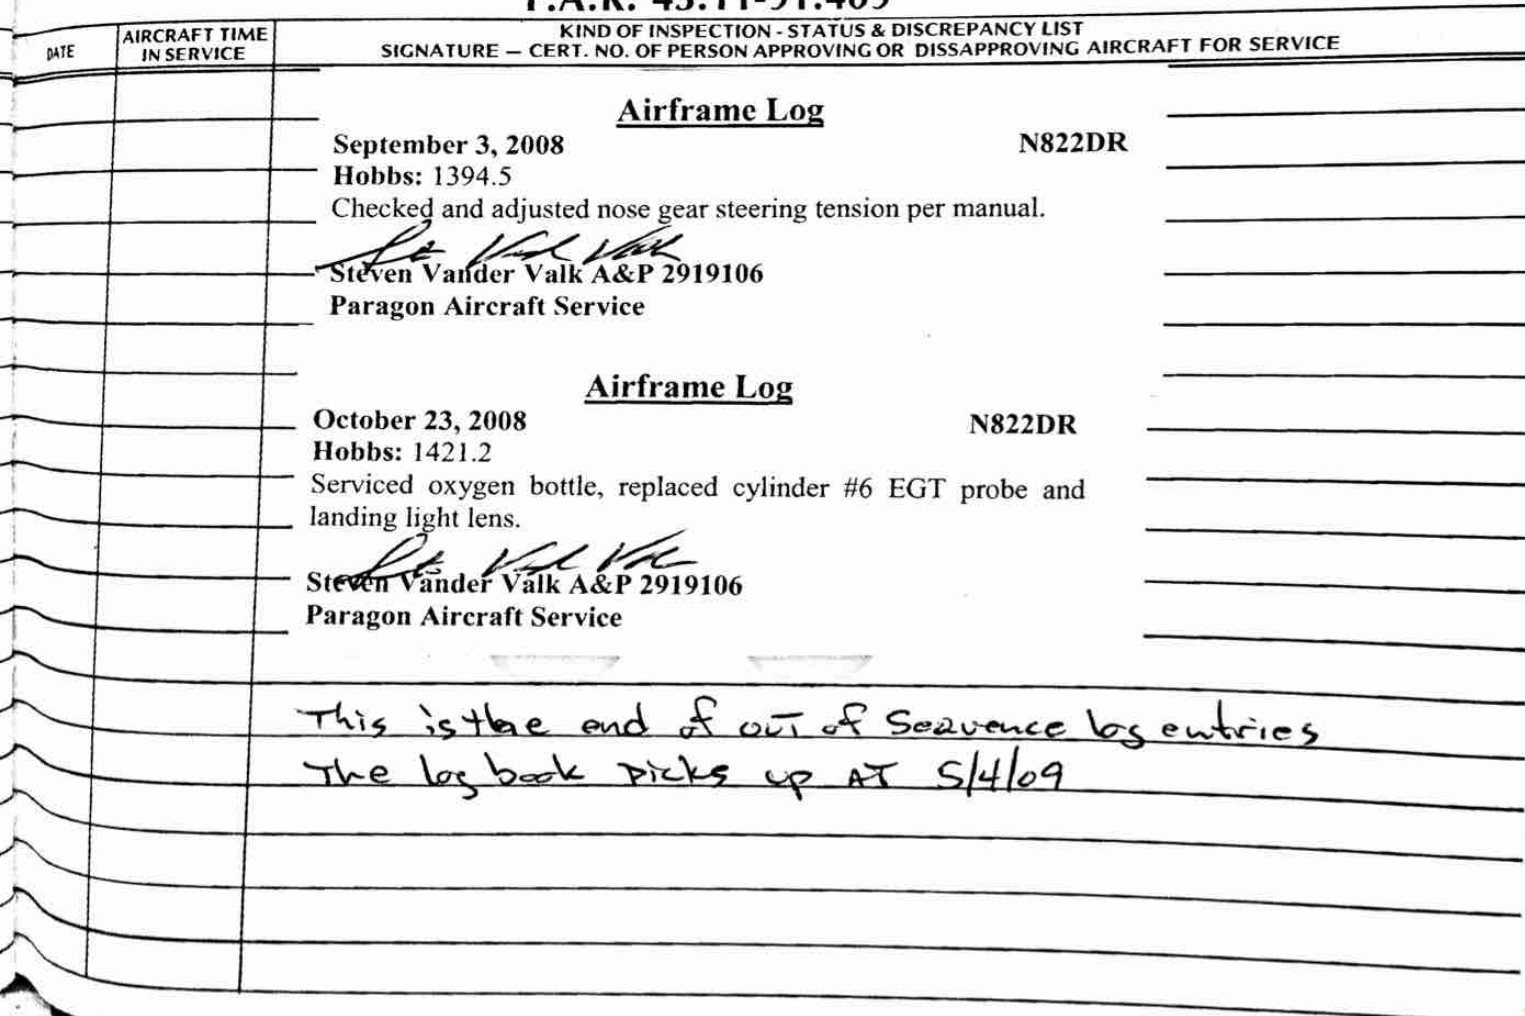 F.A.R. 43.11-91.409
DATE
AIRCRAFT TIME
IN SERVICE
KIND OF INSPECTION - STATUS & DISCREPANCY LIST
SIGNATURE — CERT. NO. OF PERSON APPROVING OR DISSAPPROVING AIRCRAFT FOR SERVICE
Airframe Log
September 3, 2008 N822DR
Hobbs: 1394.5
Checked and adjusted nose gear steering tension per manual.
Steven Vander Valk A&P 2919106
Paragon Aircraft Service
Airframe Log
October 23, 2008 N822DR
Hobbs: 1421.2
Serviced oxygen bottle, replaced cylinder #6 EGT probe and
landing light lens.
Steven Vander Valk A&P 2919106
Paragon Aircraft Service
This is the end of out of Sequence log entries
The log book picks up AT 5/4/09